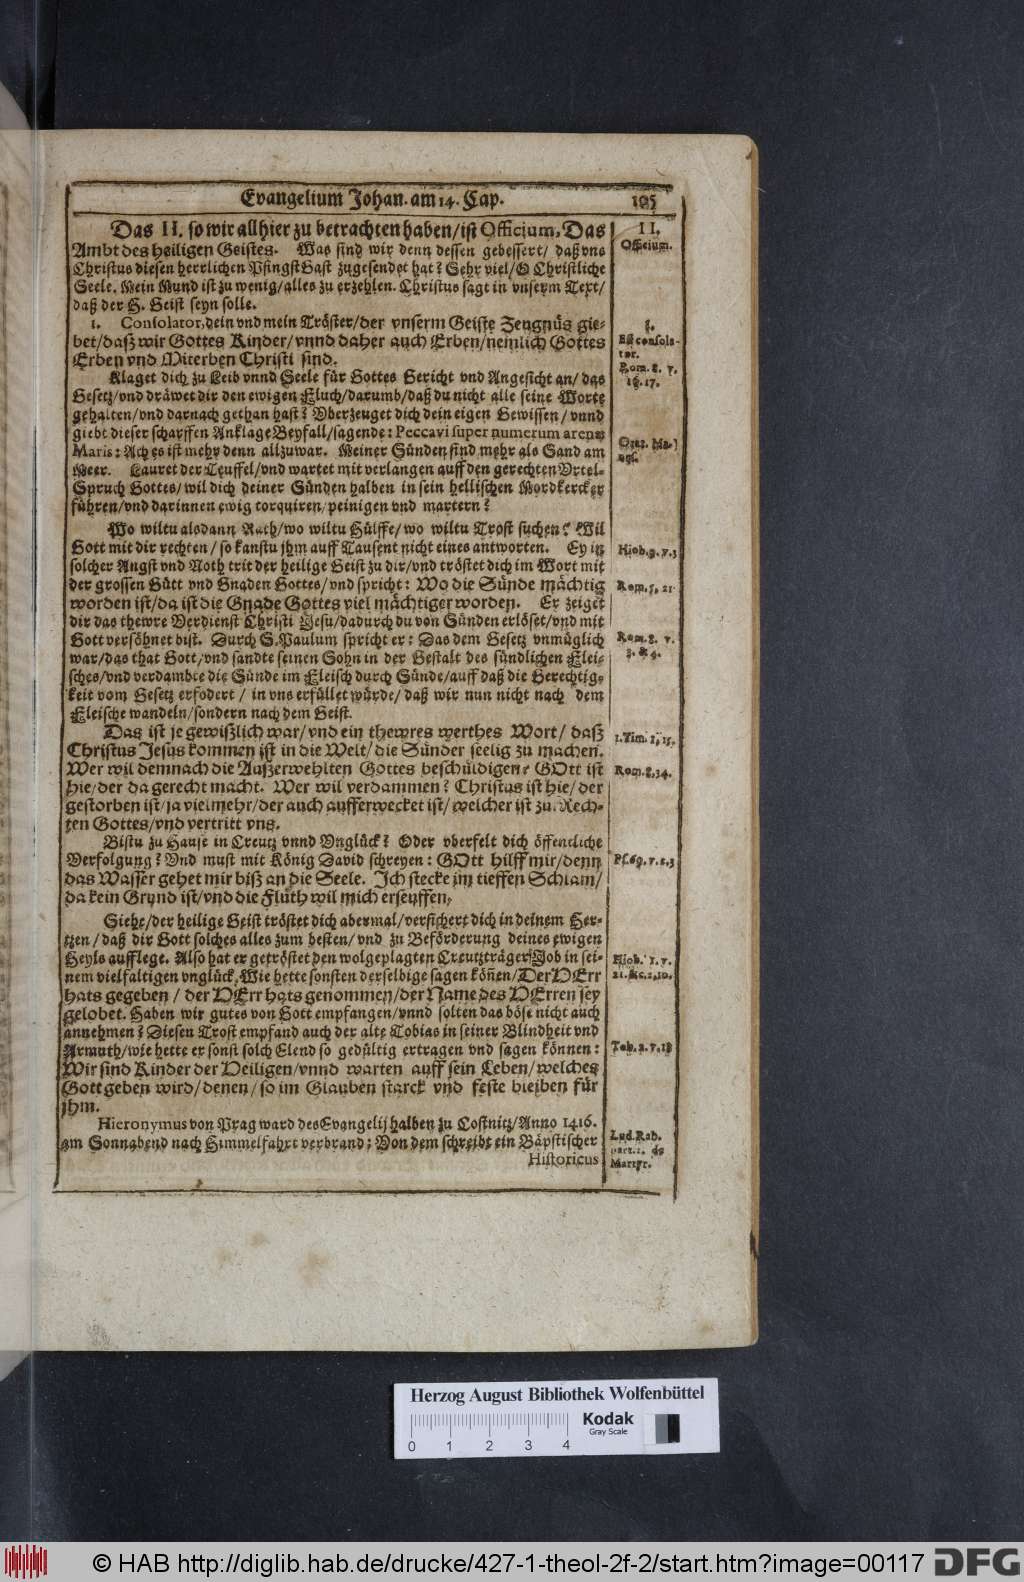 Evangelium Johan. am 14. Cap. 105
Das II. so wir allhier zu betrachten haben/ist Officium, Das
Ambt des heiligen Geistes. Was sind wir denn dessen gebessert/ daß vns
Christus diesen herrlichen PfingstGast zugesendet hat? Sehr viel/O Christliche
Seele. Mein Mund ist zu wenig/alles zu erzehlen. Christus sagt in vnserm Text/
daß der H. Geist seyn solle.
1. Consolator, dein vnd mein Tröster/der vnserm Geiste Zeugnüs gie-
bet/daß wir Gottes Kinder/vnnd daher auch Erben/nemlich Gottes
Erben vnd Miterben Christi sind.
Klaget dich zu Leib vnnd Seele für Gottes Gericht vnd Angesicht an/ das
Gesetz/vnd dräwet dir den ewigen Fluch/darumb/daß du nicht alle seine Worte
gehalten/vnd darnach gethan hast? Vberzeuget dich dein eigen Gewissen/vnnd
giebt dieser scharffen Anklage Beyfall/sagende: Peccavi super numerum arenæ
Maris: Ach es ist mehr denn allzuwar. Meiner Sünden sind mehr als Sand am
Meer. Lauret der Teuffel/vnd wartet mit verlangen auff den gerechten Vrtel-
Spruch Gottes/wil dich deiner Sünden halben in sein hellischen Mordkercker
führen/vnd darinnen ewig torquiren/peinigen vnd martern?
Wo wiltu alsdann Rath/wo wiltu Hülffe/wo wiltu Trost suchen? Wil
Gott mit dir rechten/so kanstu jhm auff Tausent nicht eines antworten. Ey in
solcher Angst vnd Noth trit der heilige Geist zu dir/vnd tröstet dich im Wort mit
der grossen Gütt vnd Gnaden Gottes/vnd spricht: Wo die Sünde mächtig
worden ist/da ist die Gnade Gottes viel mächtiger worden. Er zeiget
dir das thewre Verdienst Christi Jesu/dadurch du von Sünden erlöset/vnd mit
Gott versöhnet bist. Durch S. Paulum spricht er: Das dem Gesetz vnmüglich
war/das that Gott/vnd sandte seinen Sohn in der Gestalt des sündlichen Flei-
sches/vnd verdambte die Sünde im Fleisch durch Sünde/auff daß die Gerechtig-
keit vom Gesetz erfodert / in vns erfüllet würde/daß wir nun nicht nach dem
Fleische wandeln/sondern nach dem Geist.
Das ist je gewißlich war/vnd ein thewres werthes Wort/ daß
Christus Jesus kommen ist in die Welt/die Sünder seelig zu machen.
Wer wil demnach die Außerwehlten Gottes beschüldigen? GOtt ist
hie/der da gerecht macht. Wer wil verdammen? Christus ist hie/ der
gestorben ist/ja vielmehr/der auch aufferwecket ist/welcher ist zu Rech-
ten Gottes/vnd vertritt vns.
Bistu zu Hause in Creutz vnnd Vnglück? Oder vberfelt dich öffentliche
Verfolgung? Vnd must mit König David schreyen: GOtt hilff mir/denn
das Wasser gehet mir biß an die Seele. Ich stecke im tieffen Schlam/
da kein Grund ist/vnd die Flüth wil mich erseuffen,
Siehe/der heilige Geist tröstet dich abermal/versichert dich in deinem Her-
tzen/daß dir Gott solches alles zum besten/vnd zu Beförderung deines ewigen
Heyls aufflege. Also hat er getröstet den wolgeplagten Creutzträger Job in sei-
nem vielfaltigen vnglück. Wie hette sonsten derselbige sagen köñen/Der HErr
hats gegeben / der HErr hats genommen/der Name des HErren sey
gelobet. Haben wir gutes von Gott empfangen/vnnd solten das böse nicht auch
annehmen? Diesen Trost empfand auch der alte Tobias in seiner Blindheit vnd
Armuth/wie hette er sonst solch Elend so gedültig ertragen vnd sagen können:
Wir sind Kinder der Heiligen/vnnd warten auff sein Leben/welches
Gott geben wird/denen/so im Glauben starck vnd feste bleiben für
jhm.
Hieronymus von Prag ward des Evangelij halben zu Costnitz/Anno 1416.
am Sonnabend nach Himmelfahrt verbrand; Von dem schreibt ein Bäpstischer
Historicus
II.
Officium.
1.
Est consola-
tor.
Rom. 8. v.
16. 17.
Orat. Ma-
nas.
Hiob. 9. v. 3
Rom. 5. 21
Rom. 8. v.
3. & 4.
1. Tim. 1, 15.
Rom. 8, 34.
Ps. 69. v. 2, 3
Hiob. 1. v.
21. &c. 2, 10.
Tob. 2. v. 18
Lud. Rab.
part. 2. de
Martyr.
Herzog August Bibliothek Wolfenbüttel
0 1 2 3 4
Kodak
Gray Scale
© HAB http://diglib.hab.de/drucke/427-1-theol-2f-2/start.htm?image=00117 DFG